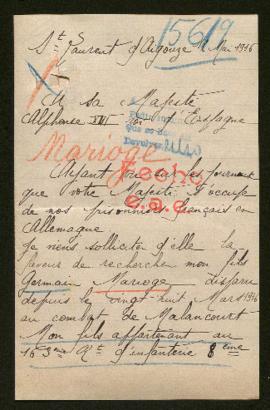 15619
St Laurent d'Aigouze 12 Mai 1916
A sa Majesté
Alphonse XIII Roi d'Espagne
Marioge
Ayant vu sur les journaux
que votre Majesté s'occupe
de nos prisonniers français en
Allemagne
je viens solliciter d'elle la
faveur de rechercher mon fils
Germain Marioge disparu
depuis le vingt huit Mars 1916
au combat de Malancourt
Mon fils appartenant au
163ème Rt d'infanterie 8ème